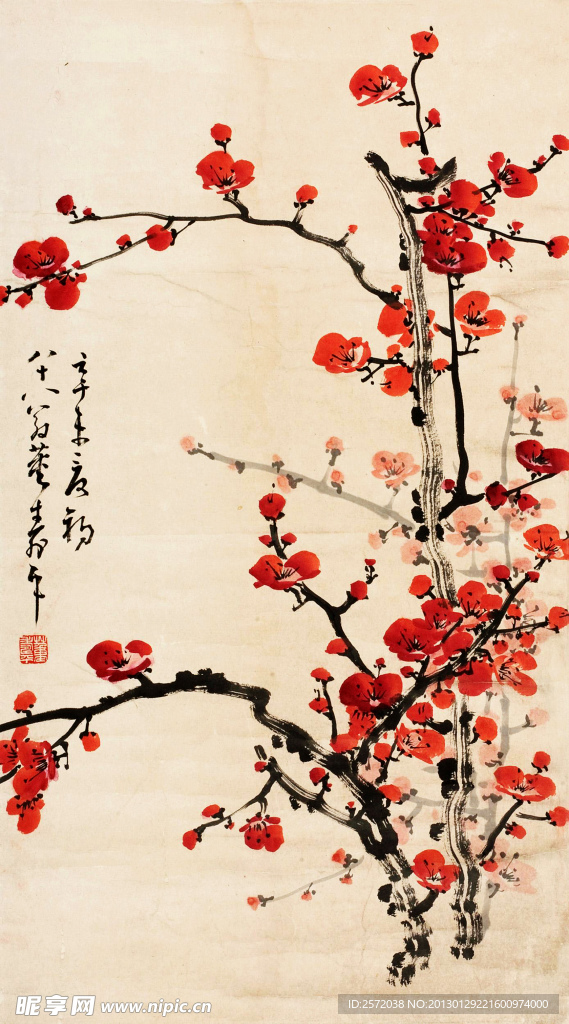 辛未夏初
八十八翁董寿平
昵享网 www.nipic.cn
ID:2572038 NO:20130129221600974000